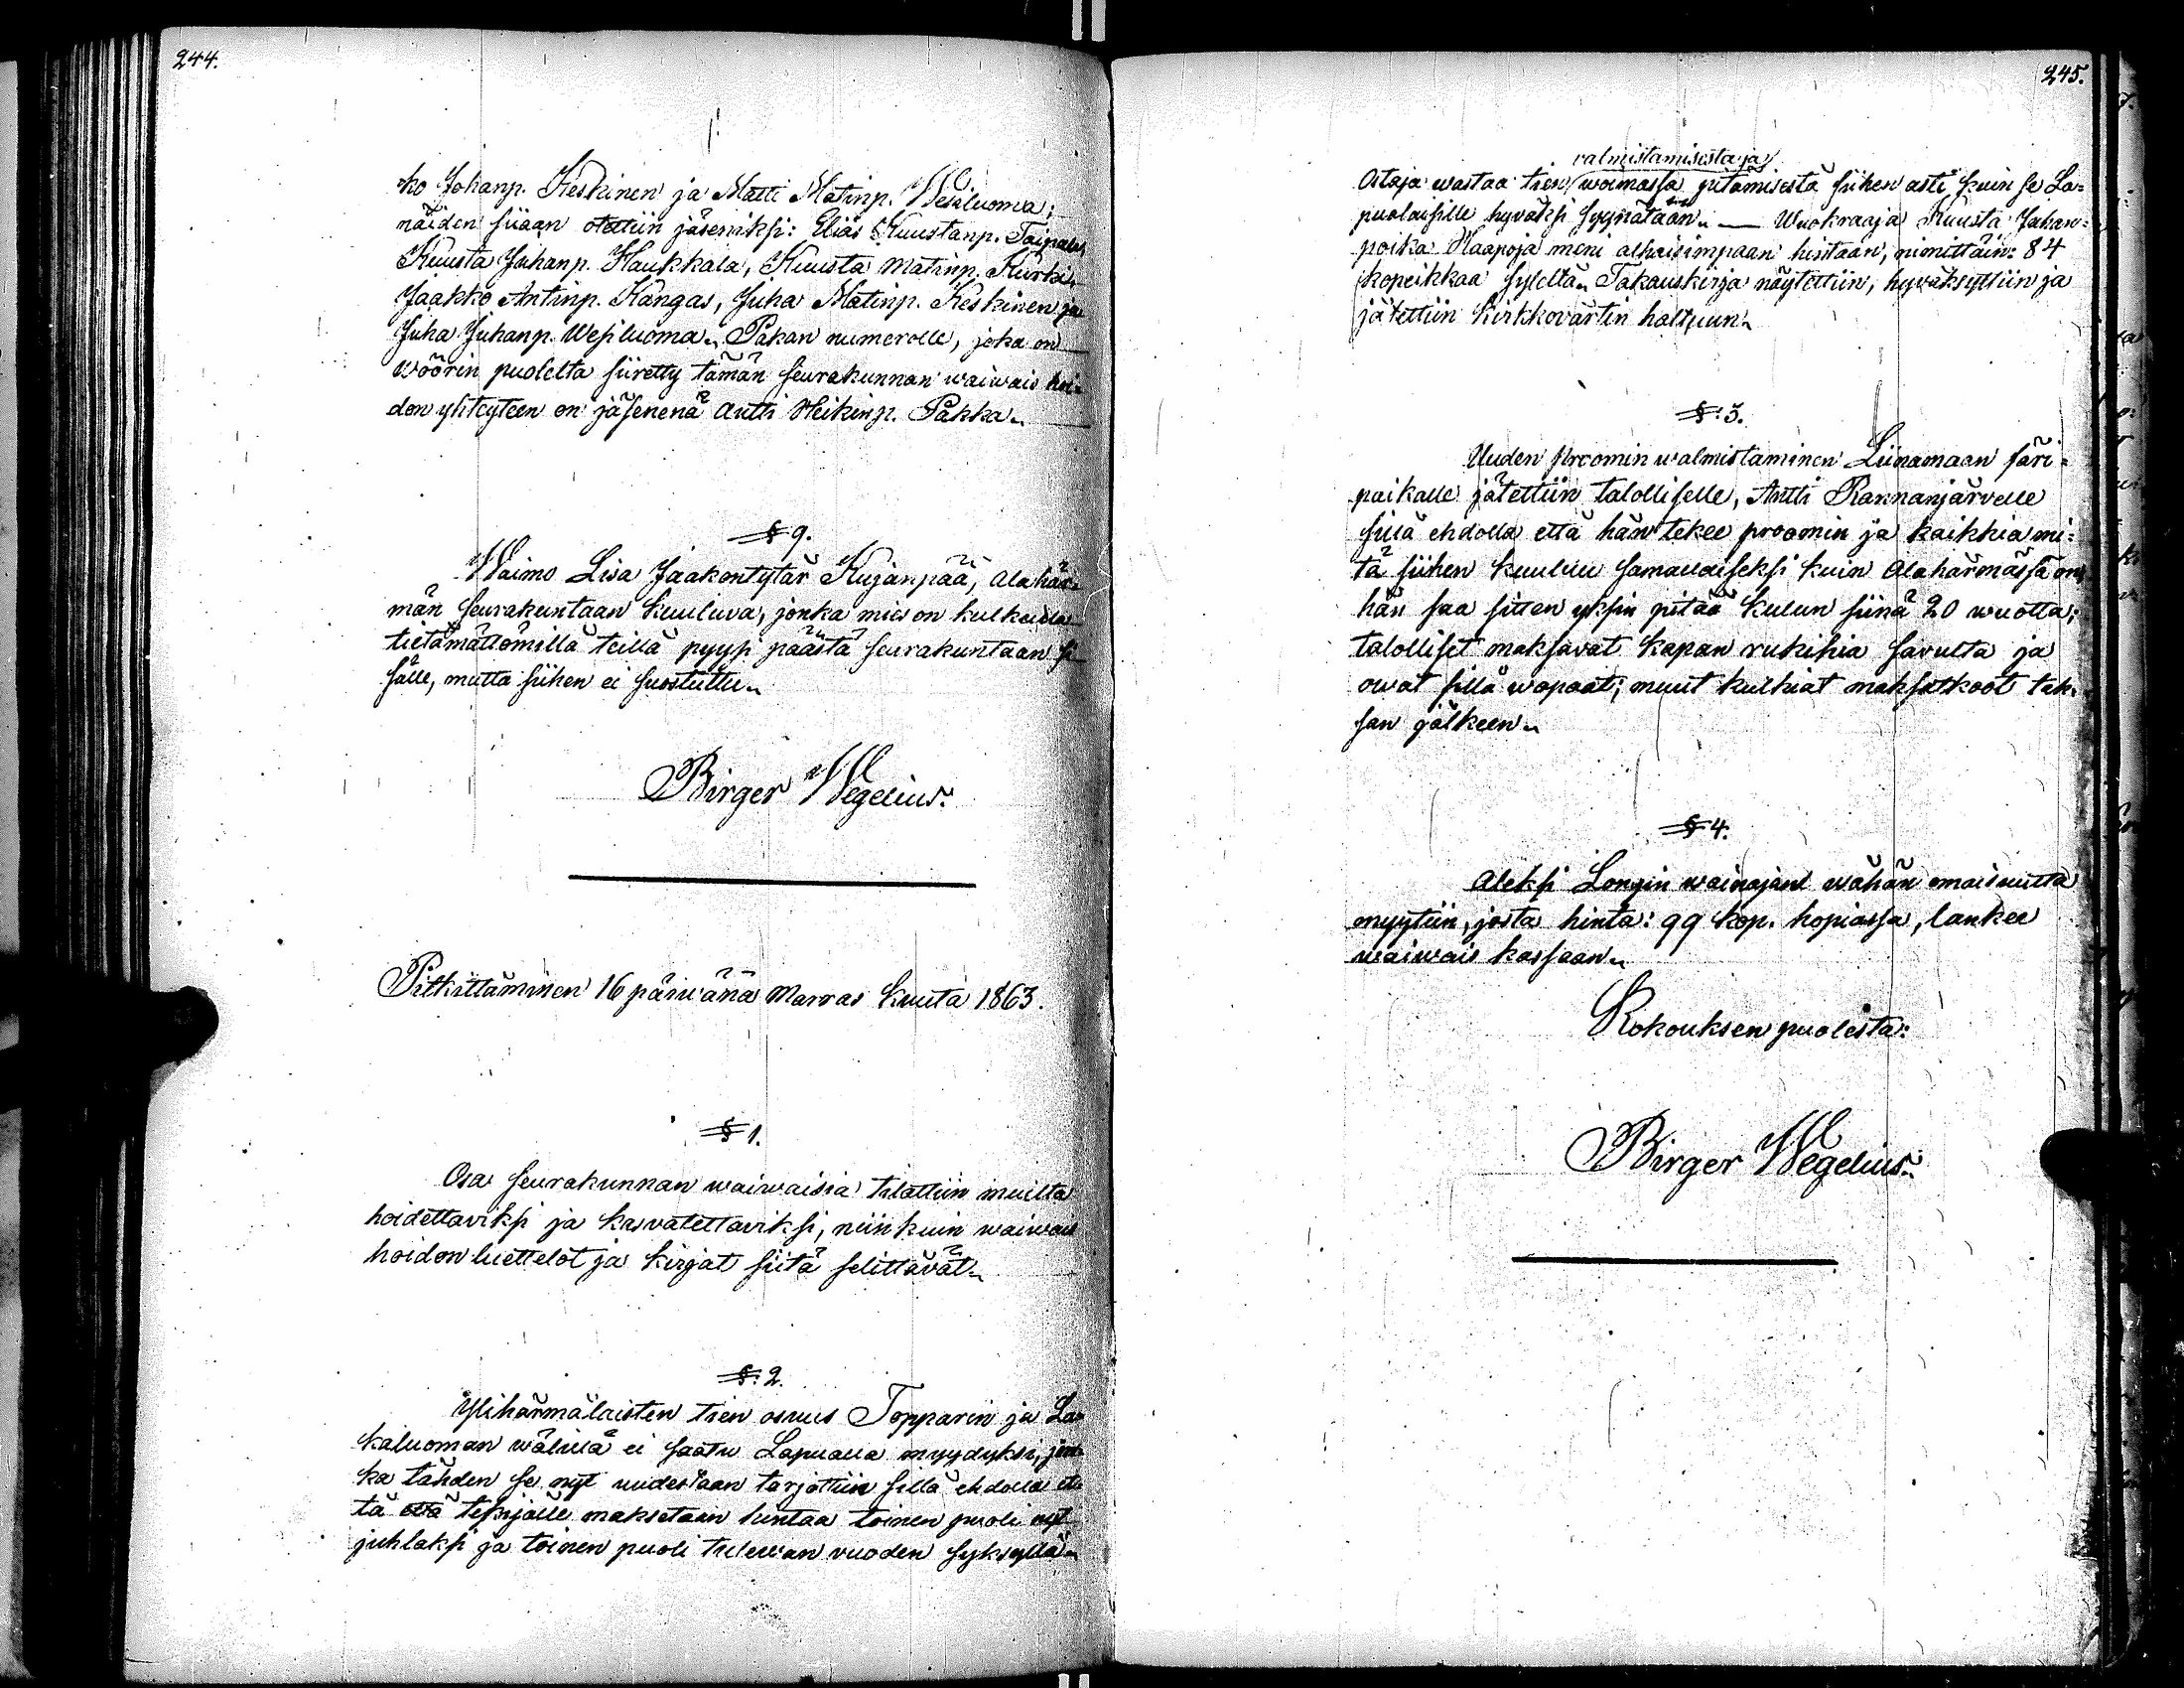 244.
ko Johanp. Keskinen ja Matti Matinp. Wesiluoma;
näiden siiaan otettiin jäseniksi: Elias Kuustanp. Taipale,
Kuusta Juhanp. Haukkala, Kuusta Matinp. Kurki,
Jaakko Antinp. Kangas, Juha Matinp. Keskinen ja
Juha Juhanp. Wesiluoma. Påkan numerolle, joka on
Wöörin puolelta siiretty tämän seurakunnan waiwais hoi-
don yhteyteen on jäsenenä Antti Heikinp. Påkka.
§ 9.
Waimo Lisa Jaakontytär Kujanpää, Alahär-
män seurakuntaan kuuluva, jonka mies on kulkeilla
tietämättömillä teillä pyysi päästä seurakuntaan si-
sälle, mutta siihen ei suostuttu.
Birger Wegelius.
Pitkittäminen 16 päiwänä Marras kuuta 1863.
§ 1.
Osa seurakunnan waiwaisia tilattiin muilta
hoidettaviksi ja kasvatettaviksi, niinkuin waiwais
hoidon luettelot ja kirjat siitä selittävät.
§. 2.
Ylihärmäläisten tien osuus Topparin ja La-
kaluoman wälillä ei saatu Lapualla myydyksi, jon-
ka tähden se nyt uudestaan tarjottiin sillä ehdolla et-
tä tekijälle maksetaan hintaa toinen puoli nyt
juhlaksi ja toinen puoli tulewan vuoden syksyllä.
245.
valmistamisesta ja
Ostaja wastaa tien woimassa pitämisestä siihen asti kuin se La-
pualaisille hyväksi syynätään. — Wuokraaja Kuusta Juhan-
poika Haapoja meni alhaisimpaan hintaan, nimittäin: 84
kopeikkaa syleltä. Takauskirja näytettiin, hyväksyttiin ja
jätettiin kirkkovärtin haltuun.
§. 3.
Uuden proomin walmistaminen Liinamaan säri-
paikalle jätettiin talolliselle, Antti Rannanjärvelle
sillä ehdolla että hän tekee proomin ja kaikkia mi-
tä siihen kuuluu samallaiseksi kuin Alahärmässä on,
hän saa sitten yksin pitää kulun siinä 20 wuotta;
talolliset maksavat kapan rukihia savulta ja
owat sillä wapaat; muut kulkiat maksatkoot tak-
san jälkeen.
§ 4.
Aleksi Longin wainajan wähän omaisuutta
myytiin, josta hinta: 99 kop. hopiassa, lankee
waiwais kassaan.
Kokouksen puolesta:
Birger Wegelius.